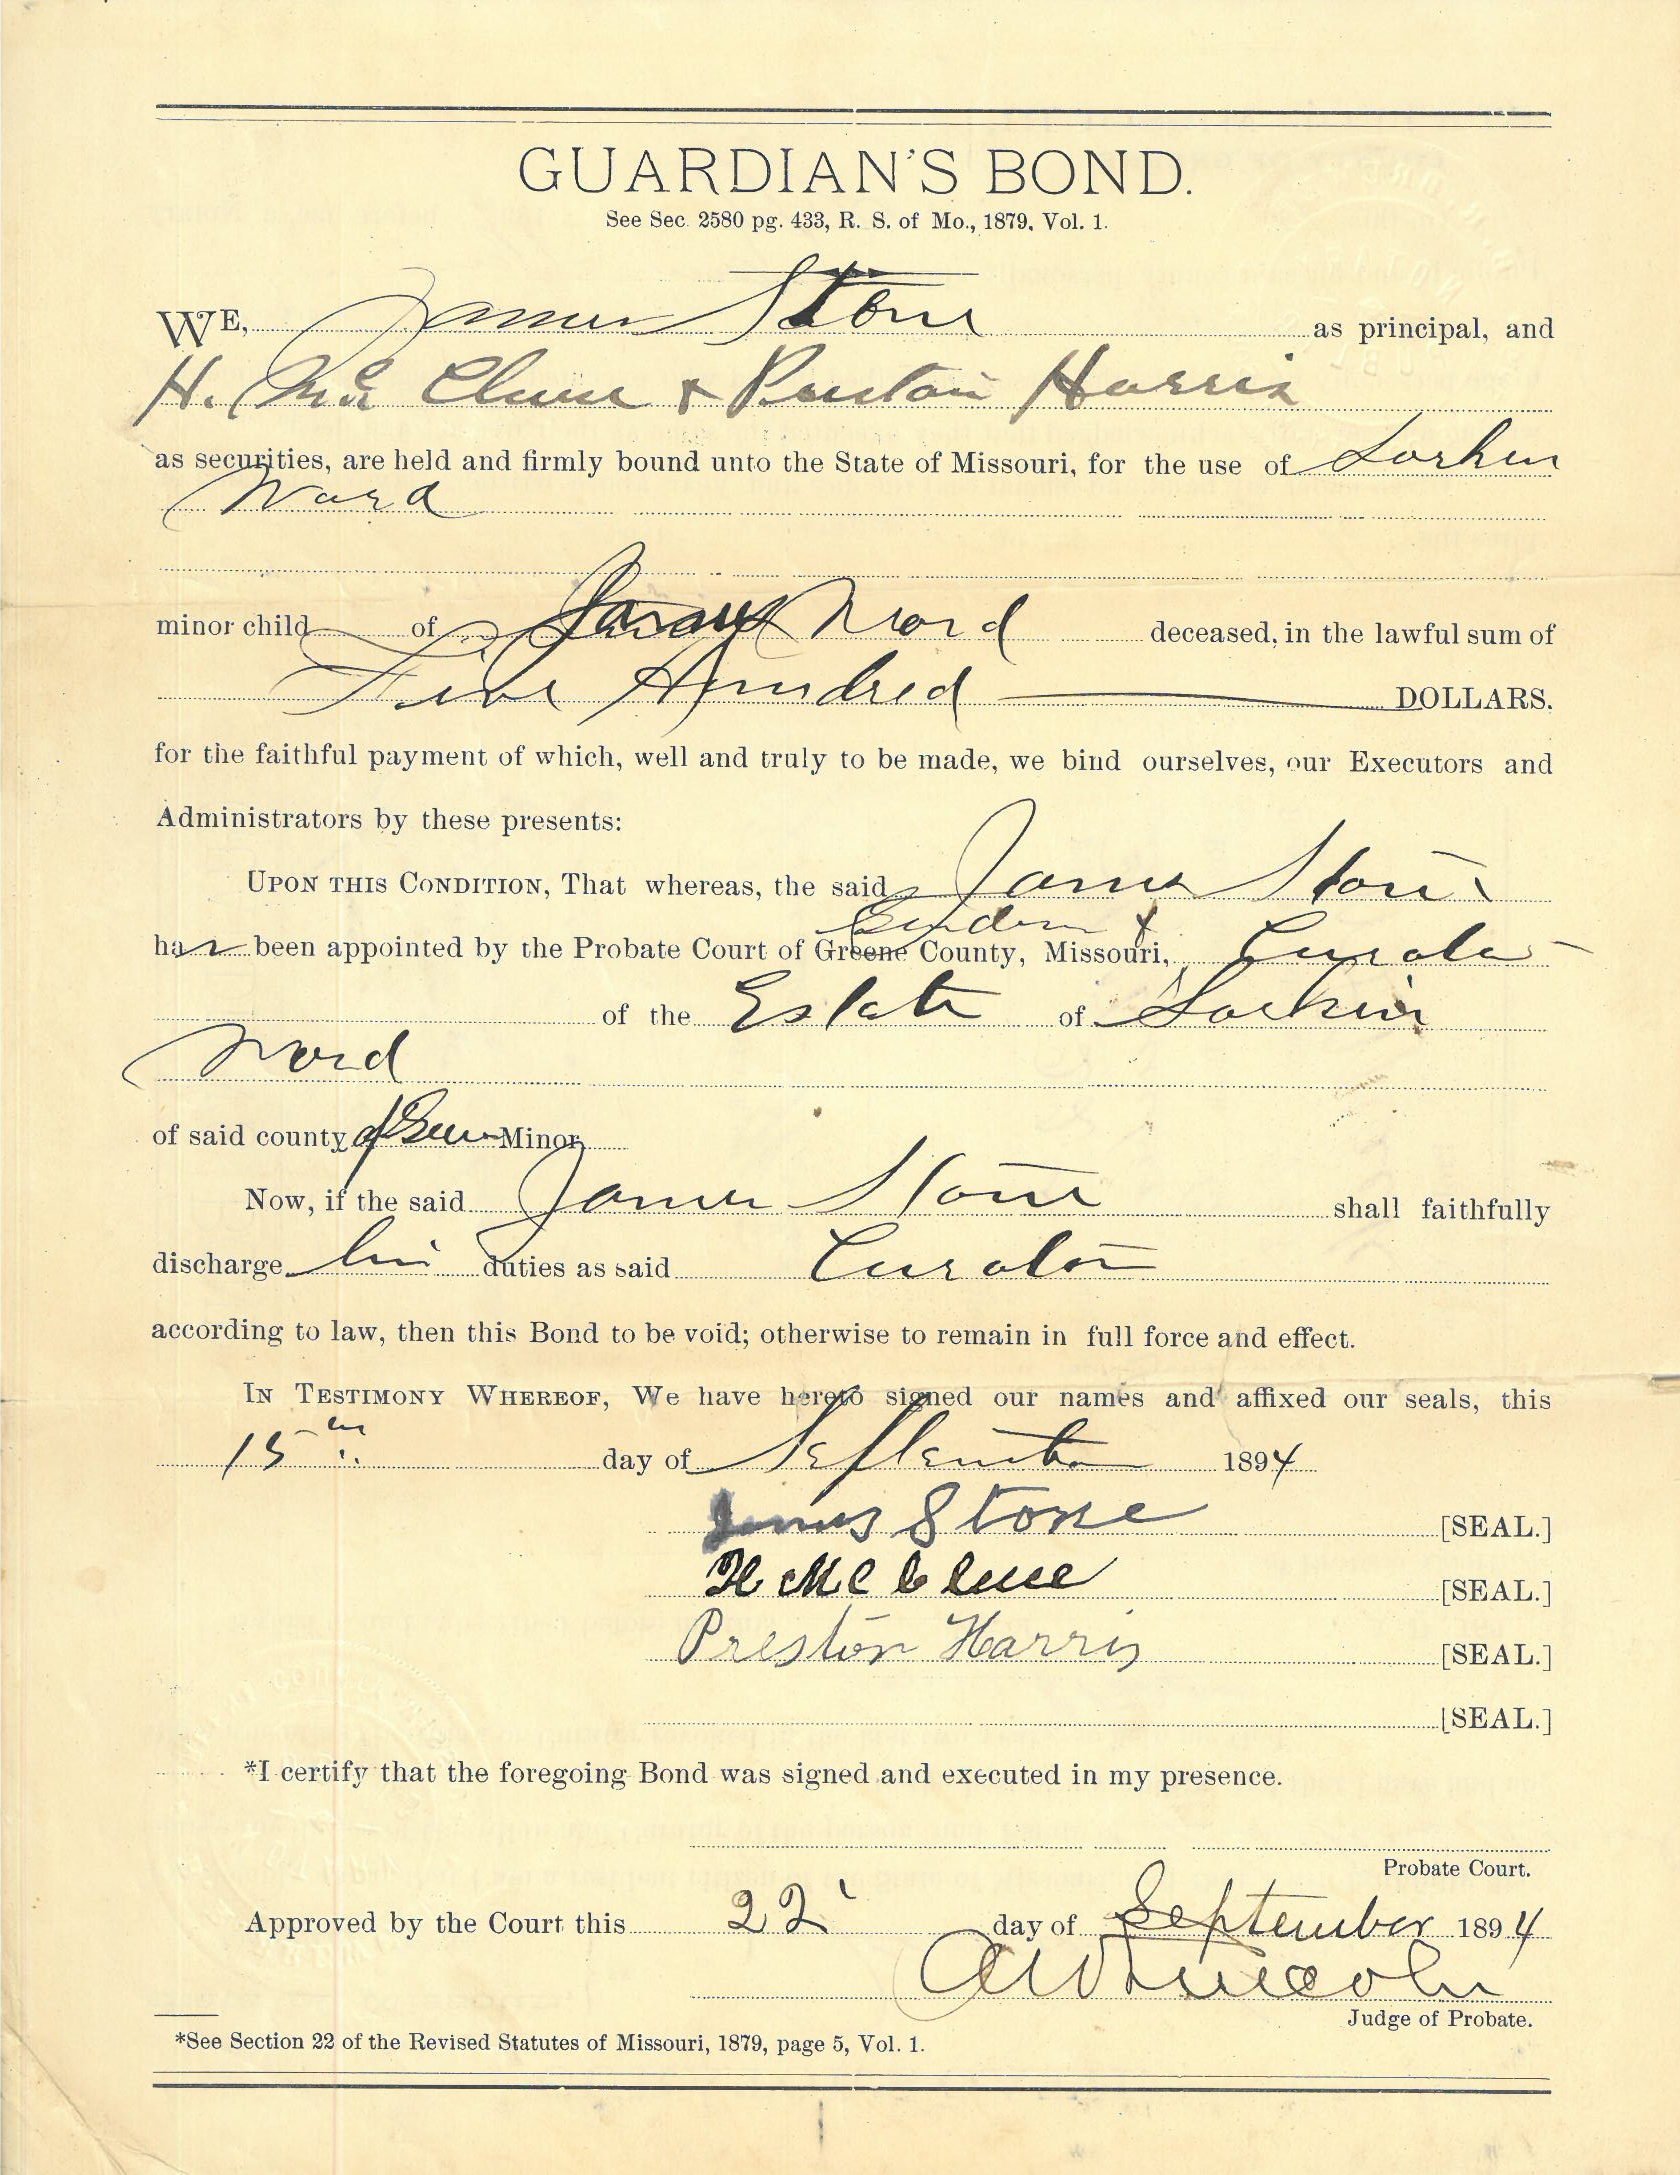 GUARDIAN'S BOND.
See Sec. 2580 pg. 433, R. S. of Mo., 1879, Vol. 1.
WE, James Stone as principal, and
H. McClure & Preston Harris
as securities, are held and firmly bound unto the State of Missouri, for the use of Larkin
Ward
minor child of James Ward deceased, in the lawful sum of
Five Hundred DOLLARS.
for the faithful payment of which, well and truly to be made, we bind ourselves, our Executors and
Administrators by these presents:
UPON THIS CONDITION, That whereas, the said James Stone
&
has been appointed by the Probate Court of Greene County, Missouri, Curator
of the Estate of Larkin
Ward
of said county of Minor
Now, if the said James Stone shall faithfully
discharge his duties as said Curator
according to law, then this Bond to be void; otherwise to remain in full force and effect.
IN TESTIMONY WHEREOF, We have hereto signed our names and affixed our seals, this
15th day of September 1894
James Stone [SEAL.]
H McClure [SEAL.]
Preston Harris [SEAL.]
[SEAL.]
*I certify that the foregoing Bond was signed and executed in my presence.
Probate Court.
Approved by the Court this 22 day of September 1894
A W Lincoln
Judge of Probate.
*See Section 22 of the Revised Statutes of Missouri, 1879, page 5, Vol. 1.